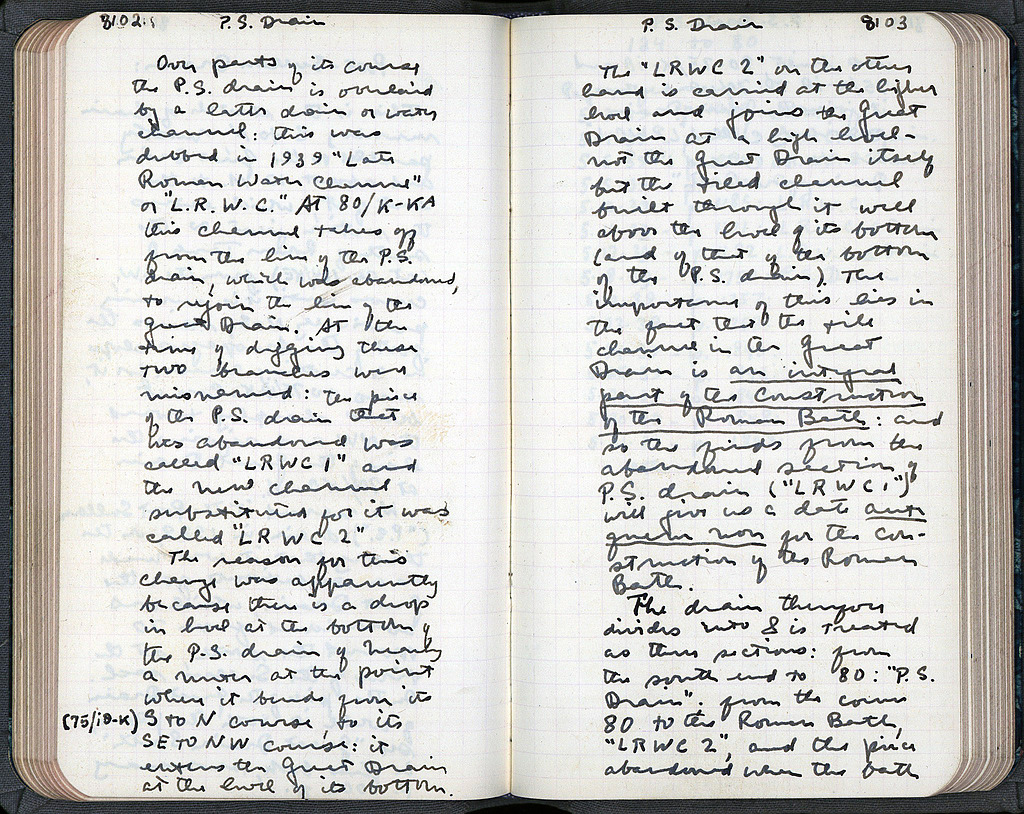 8102
P.S. Drain
Over parts of its course
the P.S. drain is overlaid
by a later drain or water
channel: this was
dubbed in 1939 "Late
Roman Water Channel"
or "L.R.W.C." At 80/K-KA
this channel takes off
from the line of the P.S.
drain, which was abandoned,
to rejoin the line of the
Great Drain. At the
time of digging these
two branches were
misnamed: the piece
of the P.S. drain that
was abandoned was
called "LRWC 1" and
the new channel
substituted for it was
called "LRWC 2".
The reason for this
change was apparently
because there is a drop
in level at the bottom of
the P.S. drain of nearly
a meter at the point
where it bends from its
(75/ -K) S to N course to its
SE to NW course: it
enters the Great Drain
at the level of its bottom.
P.S. Drain
8103
The "LRWC 2" on the other
hand is carried at the higher
level and joins the Great
Drain at a high level -
not the Great Drain itself
but the tiled channel
built through it well
above the level of its bottom
(and of that of the bottom
of the P.S. drain). The
importance of this lies in
the fact that the tile
channel in the Great
Drain is an integral
part of the construction
of the Roman Bath: and
so the finds from the
abandoned section of
P.S. drain ("LRWC 1")
will give us a date ante
quem non for the con-
struction of the Roman
Bath.
The drain therefore
divides into & is treated
as three sections: from
the south end to 80: "P.S.
Drain"; from the
80 to the Roman Bath,
"LRWC 2", and the piece
abandoned when the bath